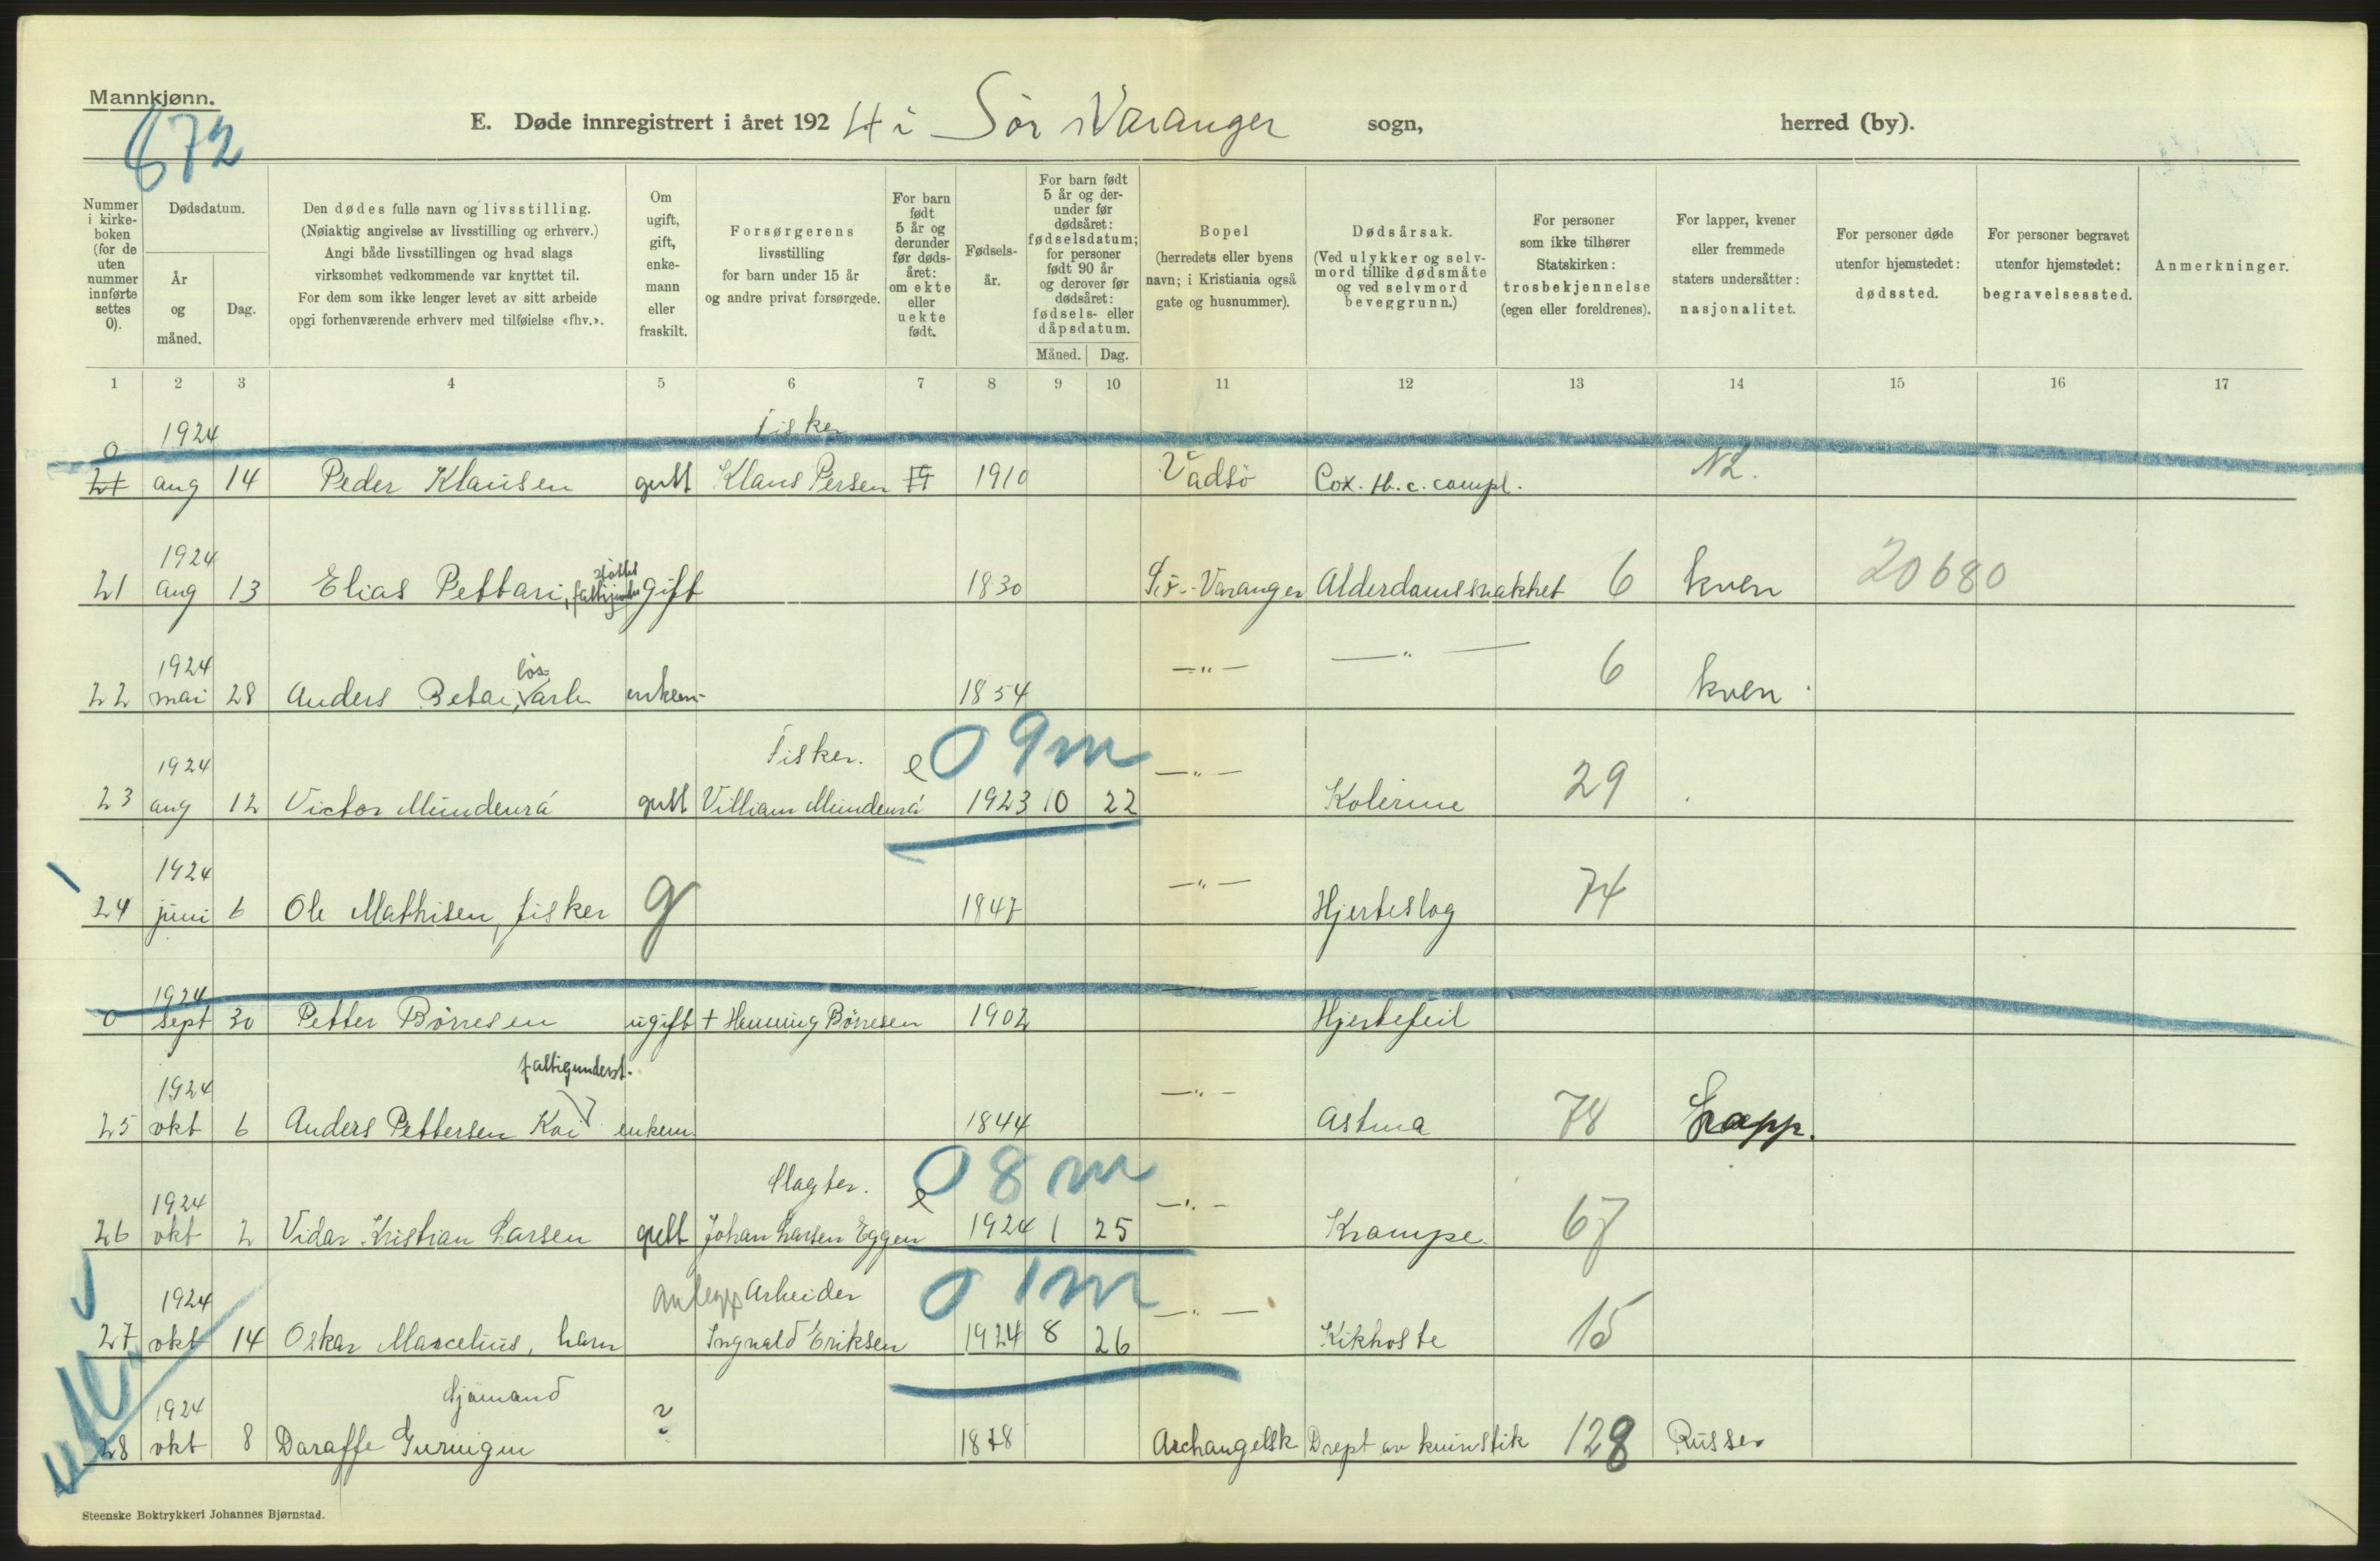 Mannkjønn.
672
E. Døde innregistrert i året 1924 i Sör Varanger sogn, herred (by).
Nummer i kirkeboken (for de uten nummer innførte settes 0).
Dødsdatum.
År og måned.
Dag.
Den dødes fulle navn og livsstilling.
(Nøiaktig angivelse av livsstilling og erhverv.)
Angi både livsstillingen og hvad slags
virksomhet vedkommende var knyttet til.
For dem som ikke lenger levet av sitt arbeide
opgi forhenværende erhverv med tilføielse «fhv.».
Om ugift, gift, enkemann eller fraskilt.
Forsørgerens livsstilling for barn under 15 år og andre privat forsørgede.
For barn født 5 år og derunder før dødsåret: om ekte eller uekte født.
Fødselsår.
For barn født 5 år og derunder før dødsåret: fødselsdatum; for personer født 90 år og derover før dødsåret: fødsels- eller dåpsdatum.
Måned. Dag.
Bopel (herredets eller byens navn; i Kristiania også gate og husnummer).
Dødsårsak. (Ved ulykker og selvmord tillike dødsmåte og ved selvmord beveggrunn.)
For personer som ikke tilhører Statskirken: trosbekjennelse (egen eller foreldrenes).
For lapper, kvener eller fremmede staters undersåtter: nasjonalitet.
For personer døde utenfor hjemstedet: dødssted.
For personer begravet utenfor hjemstedet: begravelsessted.
Anmerkninger.
1 2 3 4 5 6 7 8 9 10 11 12 13 14 15 16 17
0 1924 Fisker
21 aug 14 Peder Klausen gutt Klaus Persen 1910 Vadsö Cox. tb. c. compl. NL.
1924
21 aug 13 Elias Pettari, gift 1830 Sör-Varanger Alderdomssvakhet 6 kven 20680
1924 lös
22 mai 28 Anders enkem- 1854 —"— —"— 6 kven
1924 Fisker. e 09m
23 aug 12 Victor Mundenrá gutt Villiam Mundenrá 1923 10 22 —"— Kolerine 29
1924
24 juni 6 Ole Mathisen, fisker g 1847 —"— Hjerteslag 74
1924
0 sept 30 Petter Börresen ugift + Henning Börresen 1902 —"— Hjertefeil
1924 fattigunderst.
25 okt 6 Anders Pettersen enkem. 1844 —"— Astma 78 Lapp.
1924 Slagter. e 08m
26 okt 2 Vidar Kristian Larsen gutt Johan Larsen Eggen 1924 1 25 —"— Krampe 67
1924 anlegs Arbeider 01m
27 okt 14 Oskar Marcelius, barn Ingvald Eriksen 1924 8 26 —"— Kikhoste 15
1924 Sjömand
28 okt 8 Daraffe Gurnigin ? 1878 Archangelsk Drept av knivstik 128 Russer
Steenske Boktrykkeri Johannes Bjørnstad.